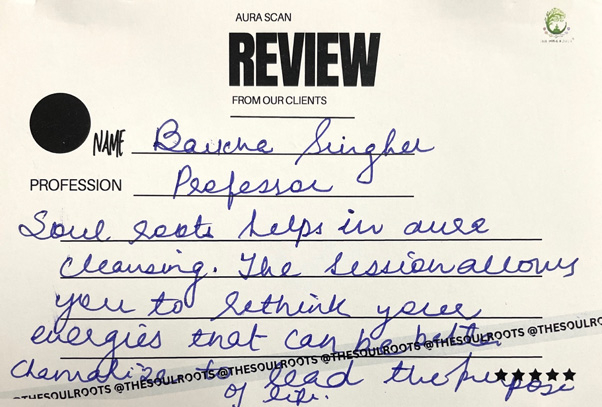 AURA SCAN
REVIEW
FROM OUR CLIENTS
NAME
PROFESSION Professor
Soul roots helps in aura
cleansing. The session allows
you to rethink your
energies that can be better
channalize to lead the purpose
of life.
@THESOULROOTS @THESOULROOTS @THESOULROOTS @THESOULROOTS @THESOULROOTS @THESOULROOTS